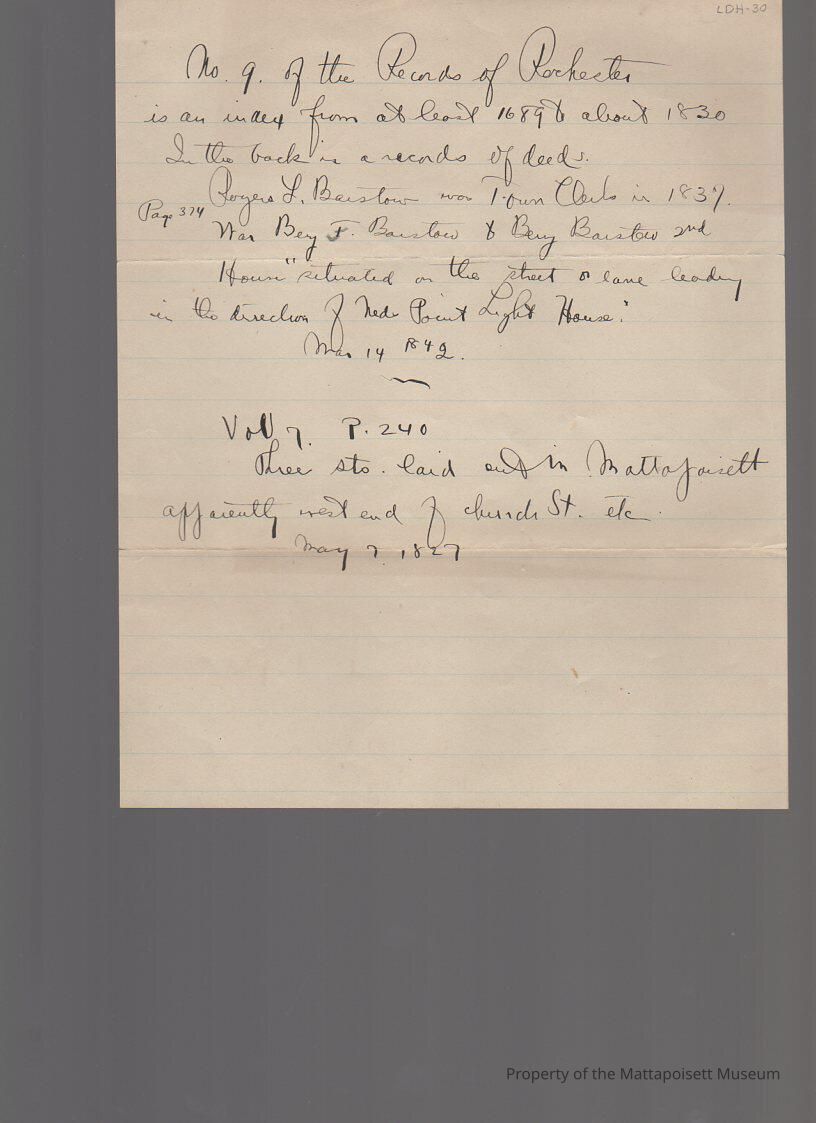 LDH-30
No. 9. of the Records of Rochester
is an index from at least 1689 to about 1830
In the back is a records of deeds.
Rogers L. Barstow was Town Clerk in 1837.
Page 374
War Benj F. Barstow & Benj Barstow 2nd
House "situated on the street or lane leading
in the direction of Neds Point Light House."
Mar 14 1842.
Vol 7. P. 240
Three sts. laid out in Mattapoisett
apparently west end of church St. etc.
May 7, 1827
Property of the Mattapoisett Museum